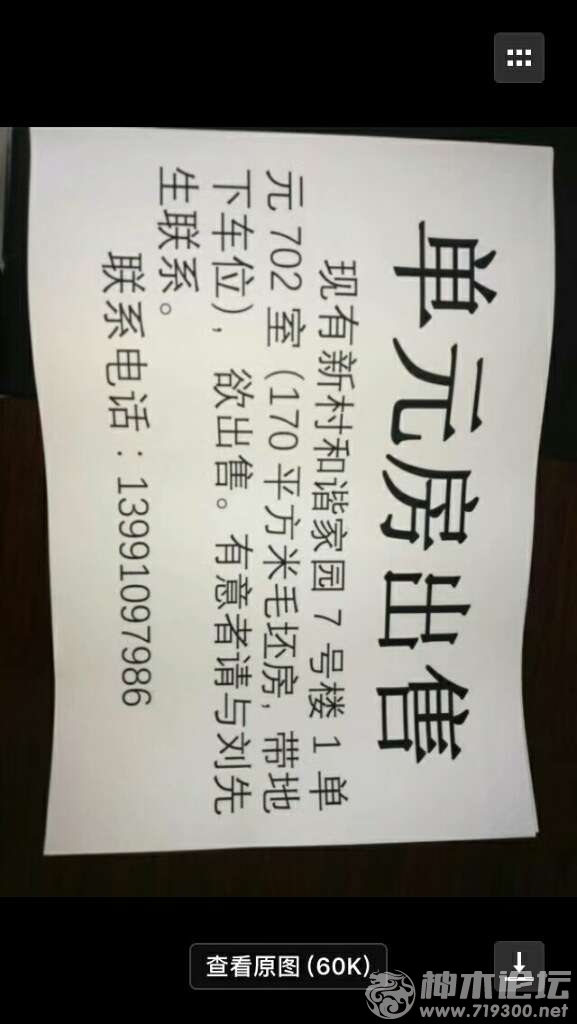 单元房出售
现有新村和谐家园 7 号楼 1 单
元 702 室（170 平方米毛坯房，带地
下车位），欲出售。有意者请与刘先
生联系。
联系电话：13991097986
查看原图 (60K)
神木论坛
www.719300.net